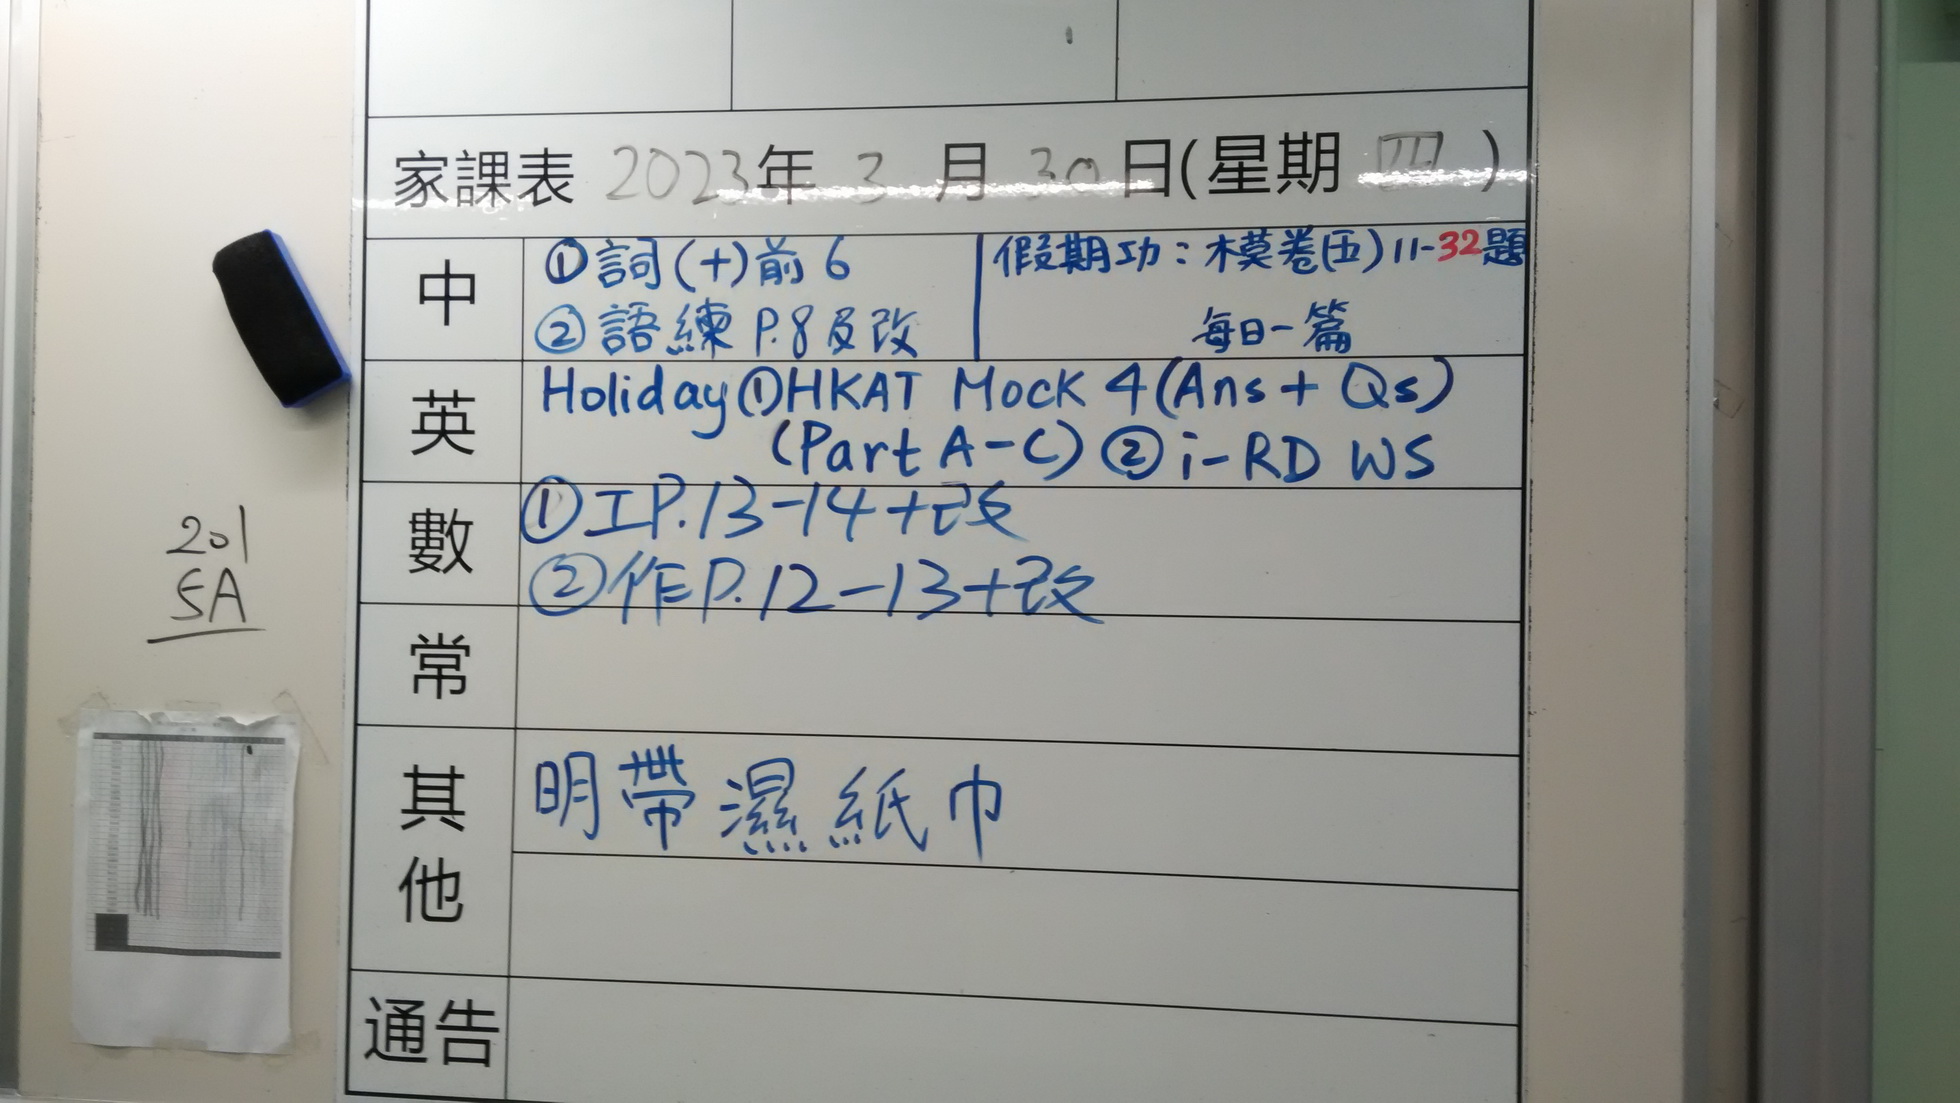 家課表 2023年 3 月 30 日(星期 四 )
中
①詞(十)前6
②語練 P.8及改
假期功：模卷(五)11-32題
每日一篇
英
Holiday ①HKAT Mock 4 (Ans + Qs)
(Part A-C) ② i-RD WS
數
①工P.13-14+改
②作P.12-13+改
常
其他
明帶濕紙巾
通告
201
5A